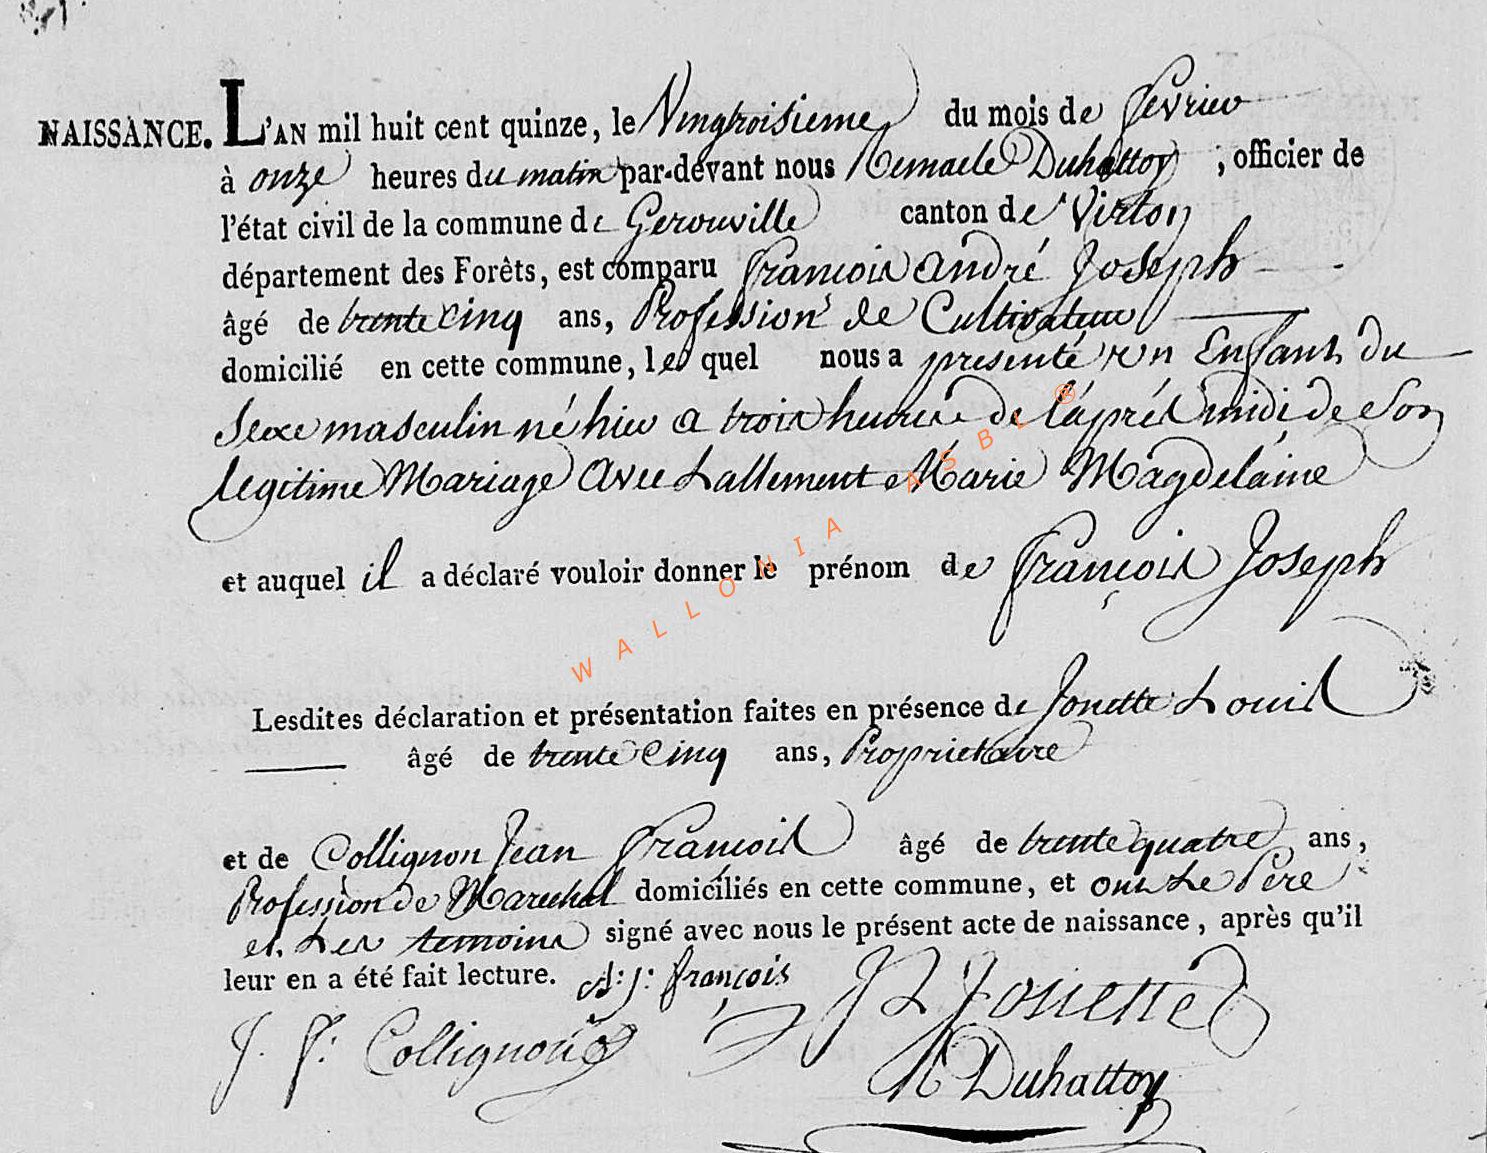 NAISSANCE. L'AN mil huit cent quinze, le Vingtroisieme du mois de fevrier
à onze heures du matin par-devant nous Remacle Duhattoy, officier de
l'état civil de la commune de Gerouville canton de Virton
département des Forêts, est comparu françois andré Joseph
âgé de trente cinq ans, Profession de Cultivateur
domicilié en cette commune, lequel nous a presenté un Enfant du
Sexe masculin né hier a trois heures de l'aprés midi de Son
legitime Mariage avec Lallement Marie Magdelaine
et auquel il a déclaré vouloir donner le prénom de françois Joseph
Lesdites déclaration et présentation faites en présence de Jonette Louis
âgé de trente cinq ans, Proprietaire
et de Collignon Jean françois âgé de trente quatre ans,
Profession de Marechal domiciliés en cette commune, et ont Le Pere
et Les temoins signé avec nous le présent acte de naissance, après qu'il
leur en a été fait lecture. A: J: françois
J L Jonette
J. F: Collignon
R Duhattoy
WALLONIA ASBL ®